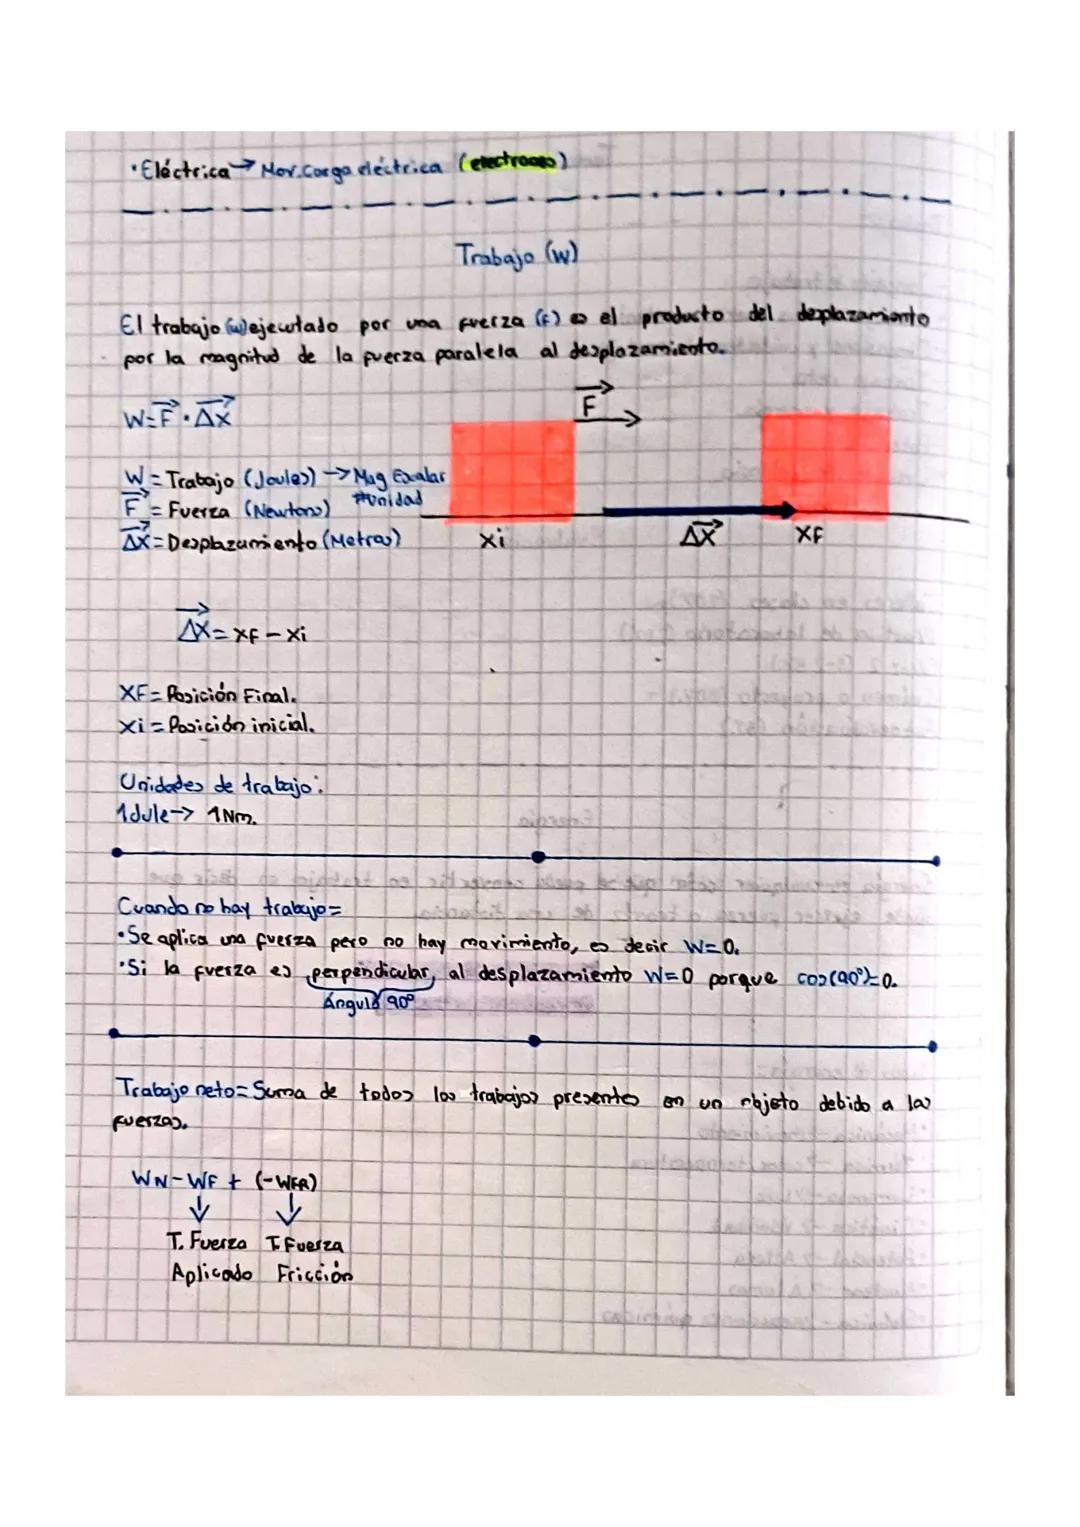 ·Eléctrica → Mov. Carga eléctrica (electrones)
Trabajo (w)
El trabajo (w) ejecutado por una fuerza (F) es el producto del desplazamiento
por la magnitud de la fuerza paralela al desplazamiento.
W=F · ΔX
F
W = Trabajo (Joules) → Mag Escalar
#unidad
F = Fuerza (Newtons)
ΔX = Desplazamiento (Metros)
Xi ΔX XF
ΔX = XF - Xi
XF = Posición Final.
Xi = Posición inicial.
Unidades de trabajo:
1Jule → 1Nm.
Cuando no hay trabajo=
·Se aplica una fuerza pero no hay movimiento, es decir W=0.
·Si la fuerza es perpendicular, al desplazamiento W=0 porque cos(90°)=0.
Ángulo 90°
Trabajo neto = Suma de todos los trabajos presentes en un objeto debido a las
fuerzas.
WN-WF + (-WFR)
T. Fuerza T. Fuerza
Aplicado Fricción